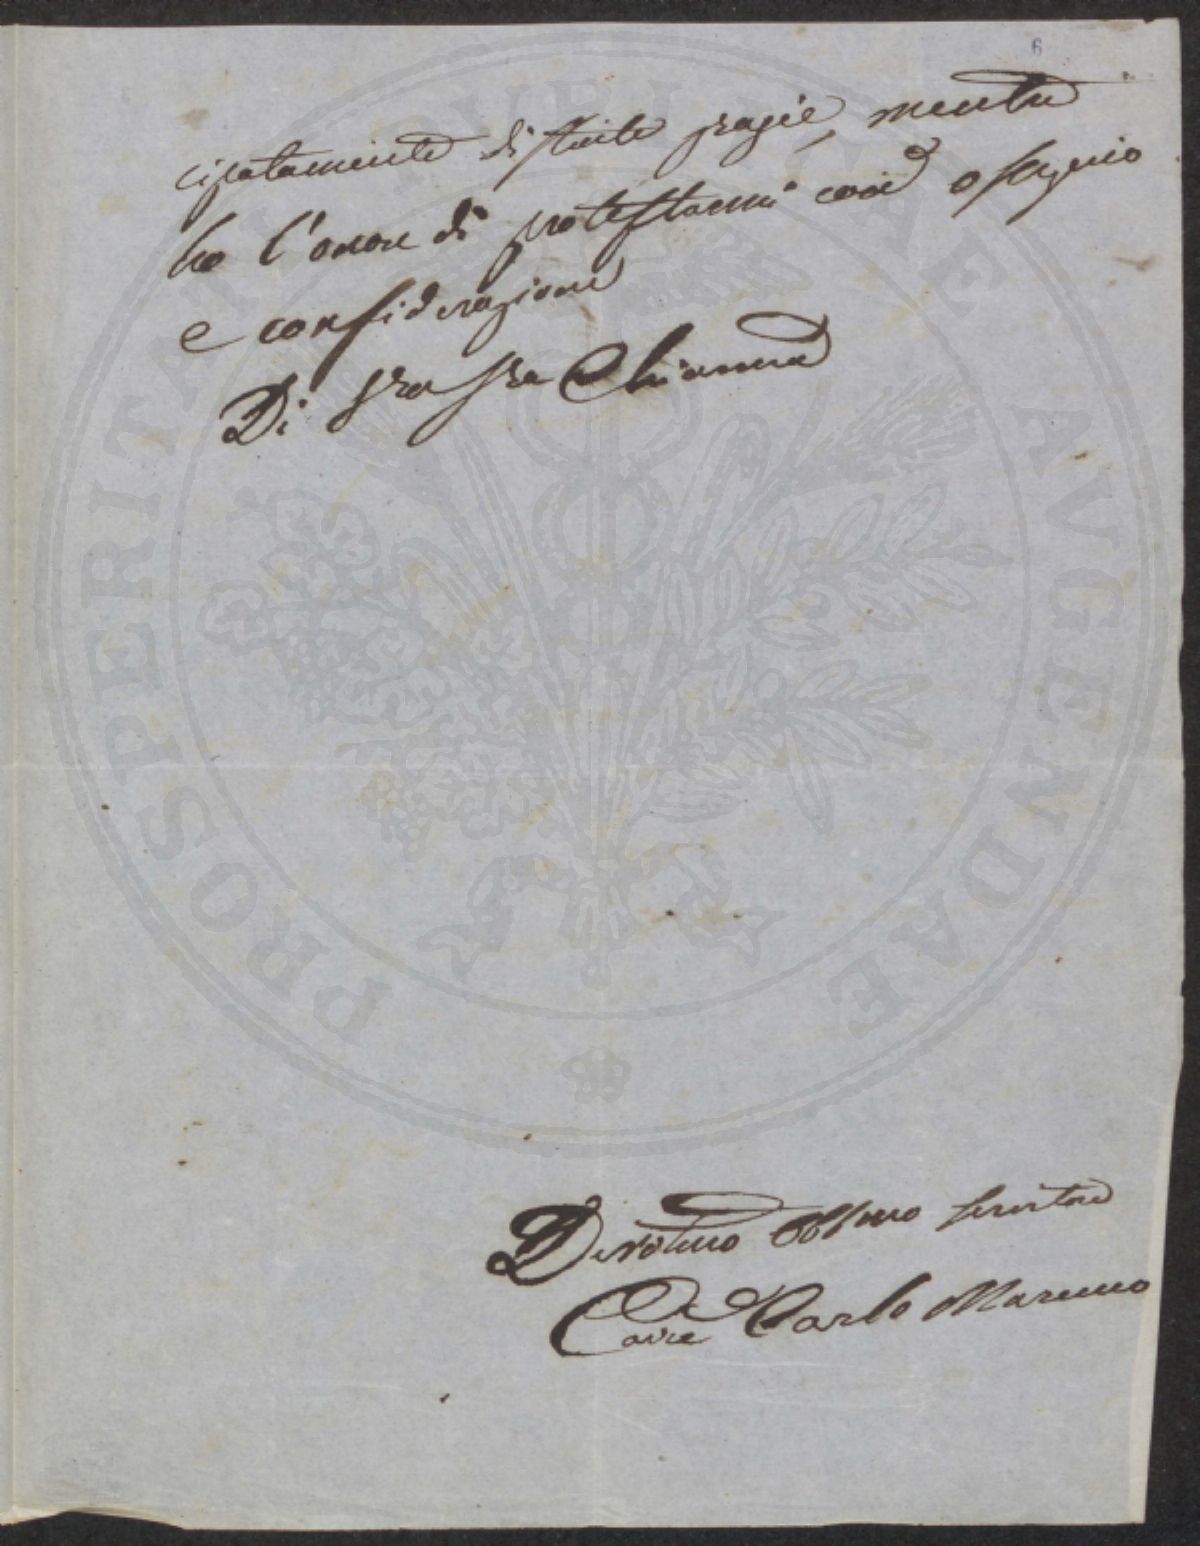 6
cipatamente distinte grazie, mentre
ho l'onore di protestarmi con ossequio
e considerazione
Di
Devotmo Obbmo Servitore
Cavre Carlo Marenco
PROSPERITATI PVBLICAE AVGENDAE